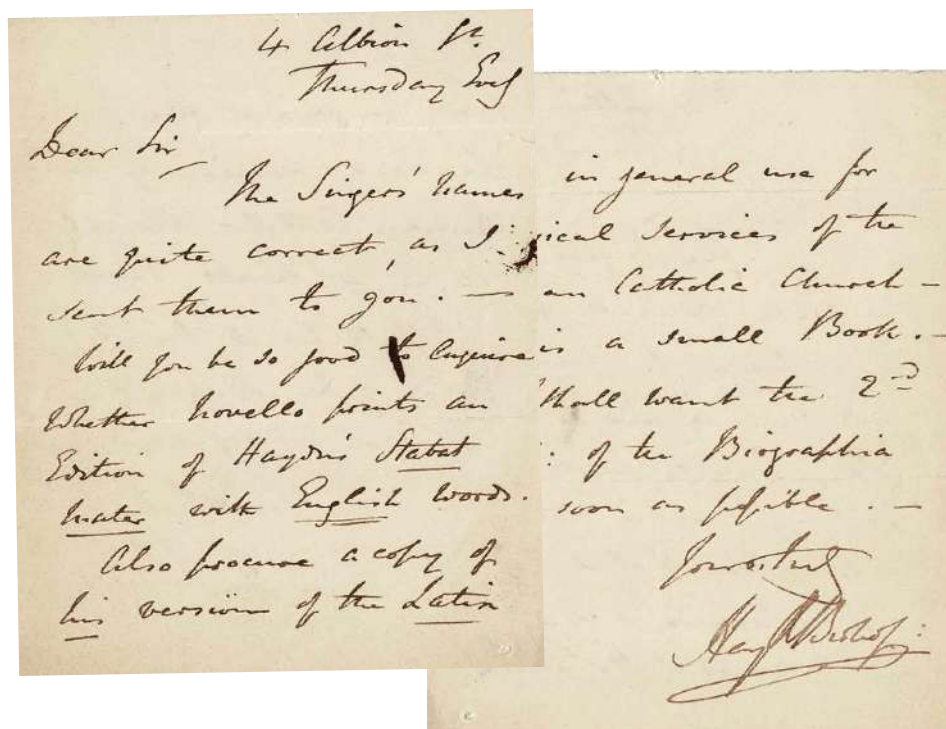 4 Albion St.
Thursday Evg
Dear Sir
The Singers' names
are quite correct, as I
sent them to you. —
Will you be so good to enquire
whether Novello prints an
Edition of Haydn's Stabat
Mater with English words.
Also procure a copy of
his version of the Latin
in general use for
sical Services of the
an Catholic Church —
is a small Book. —
shall want the 2nd
: of the Biographia
soon as possible. —
Yours truly
Henry R Bishop